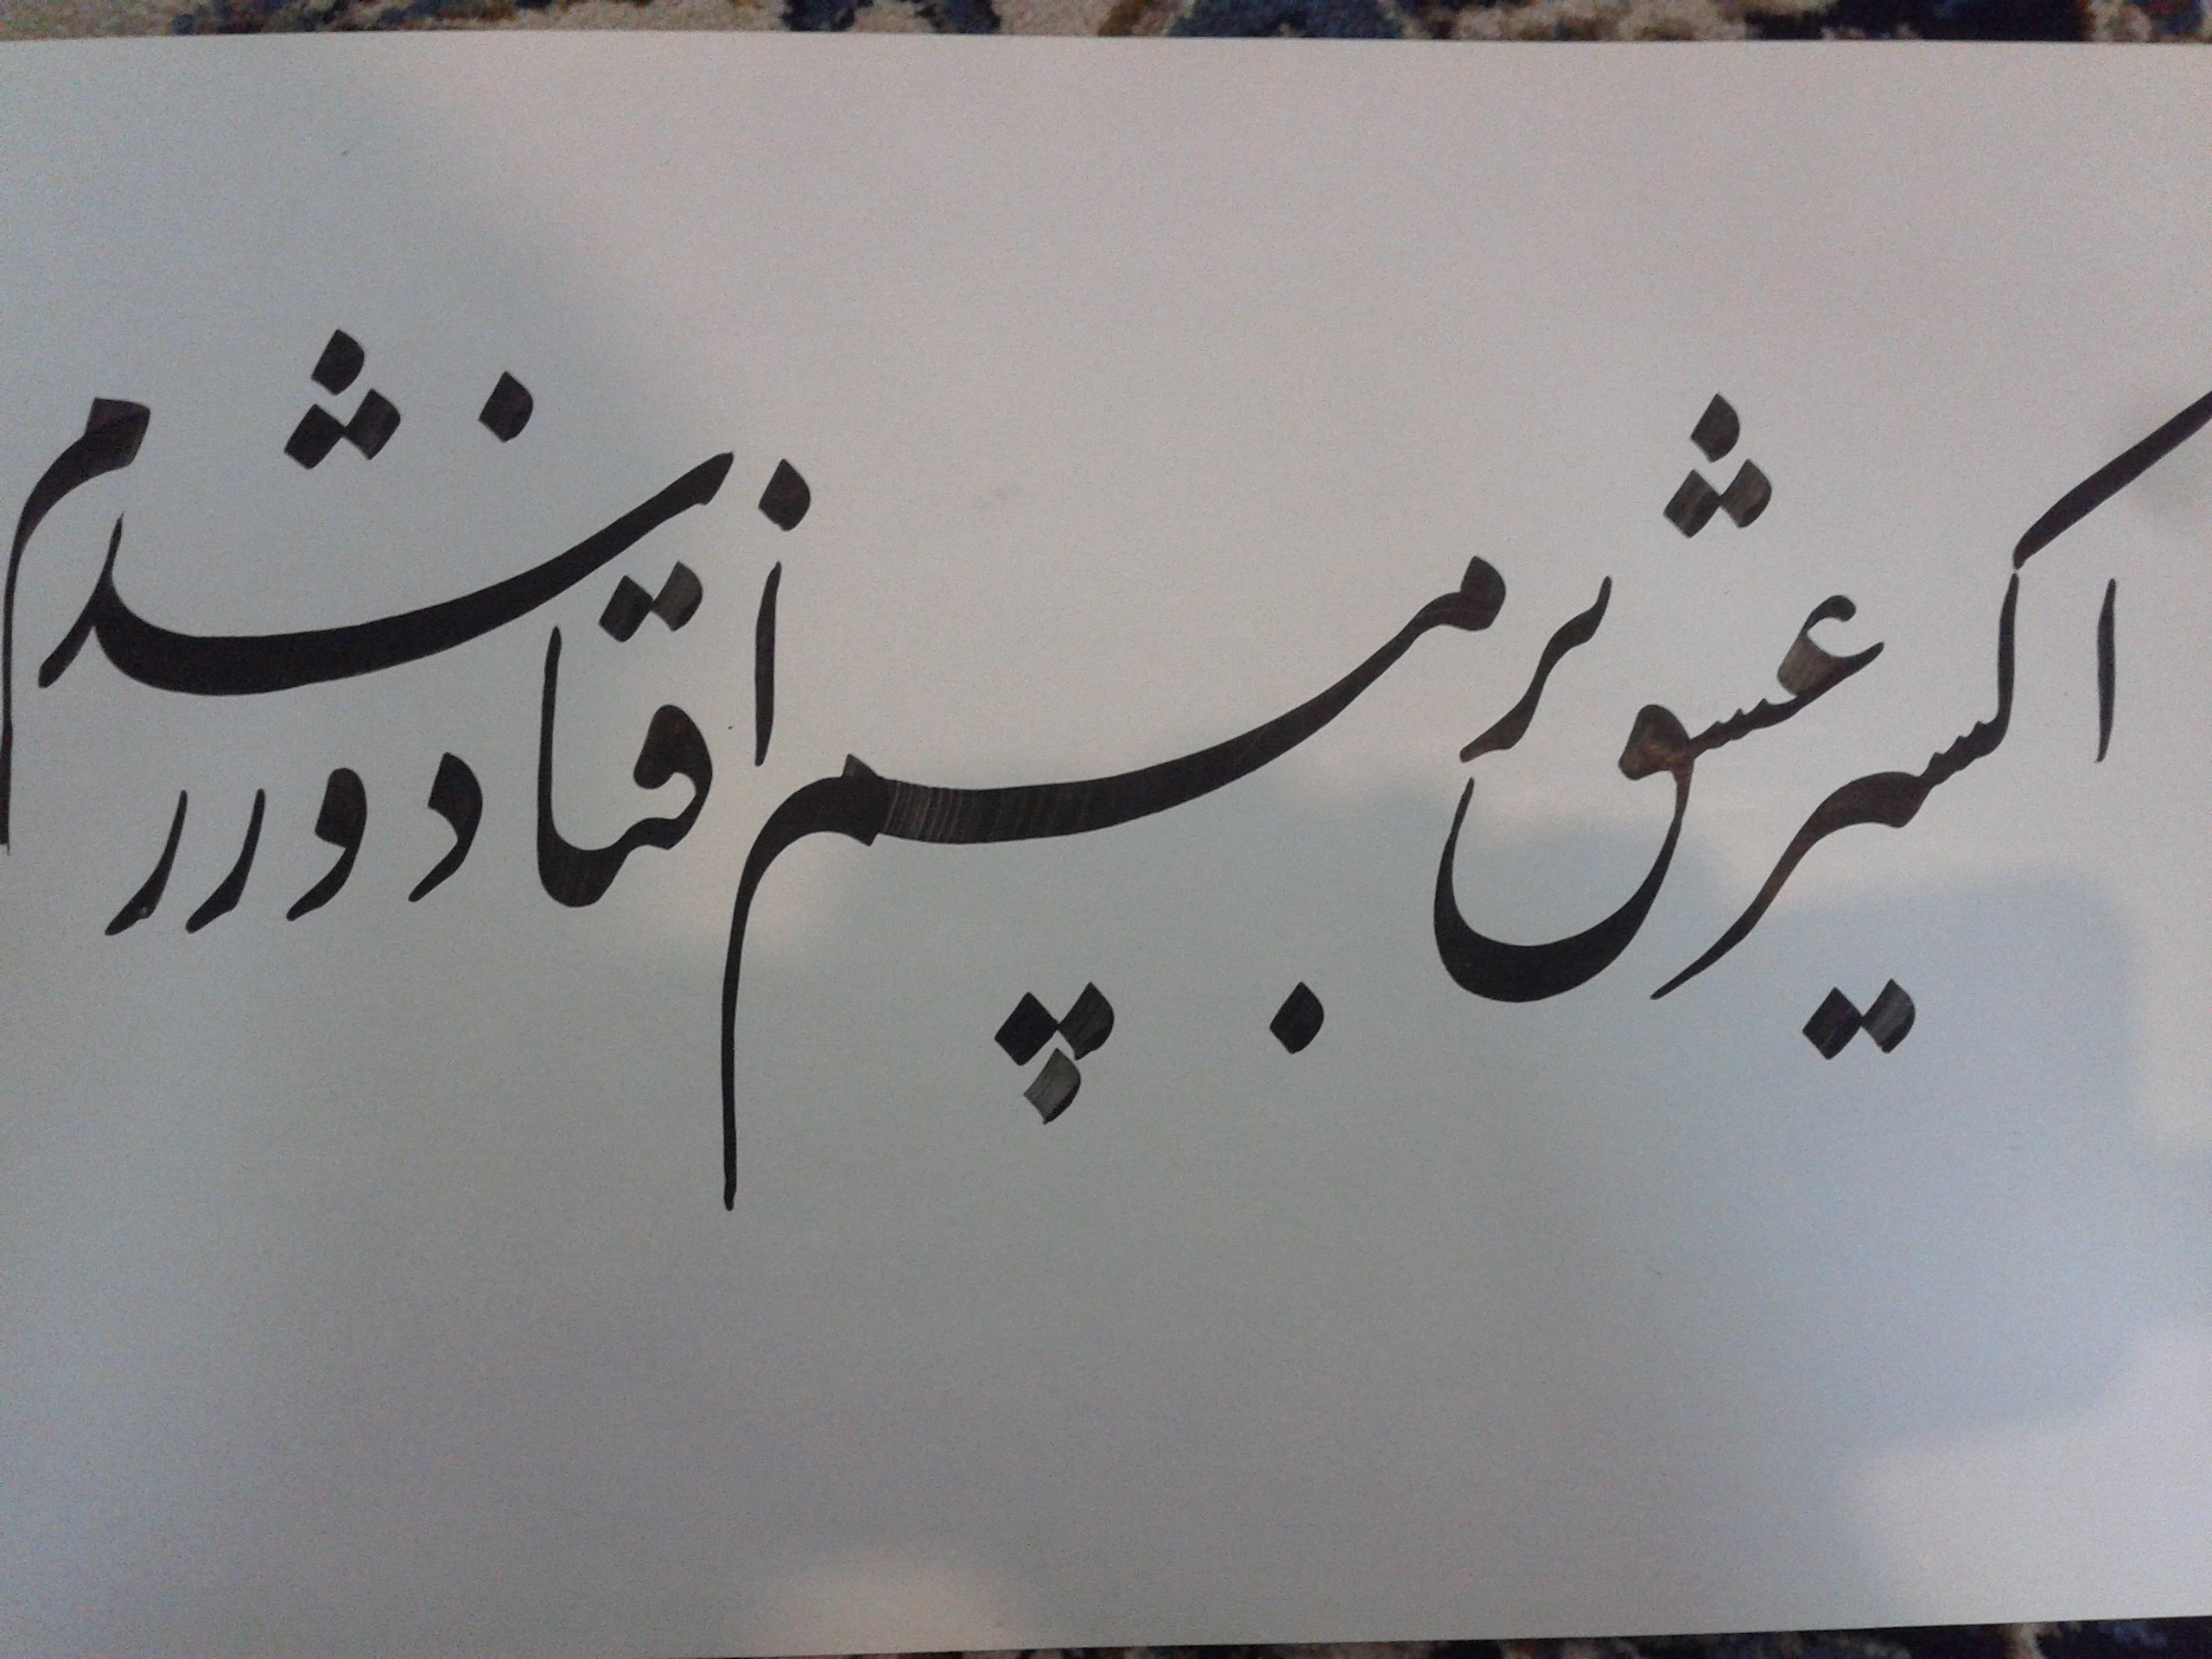 اکسیر عشق بر مسم افتاد و زر شدم